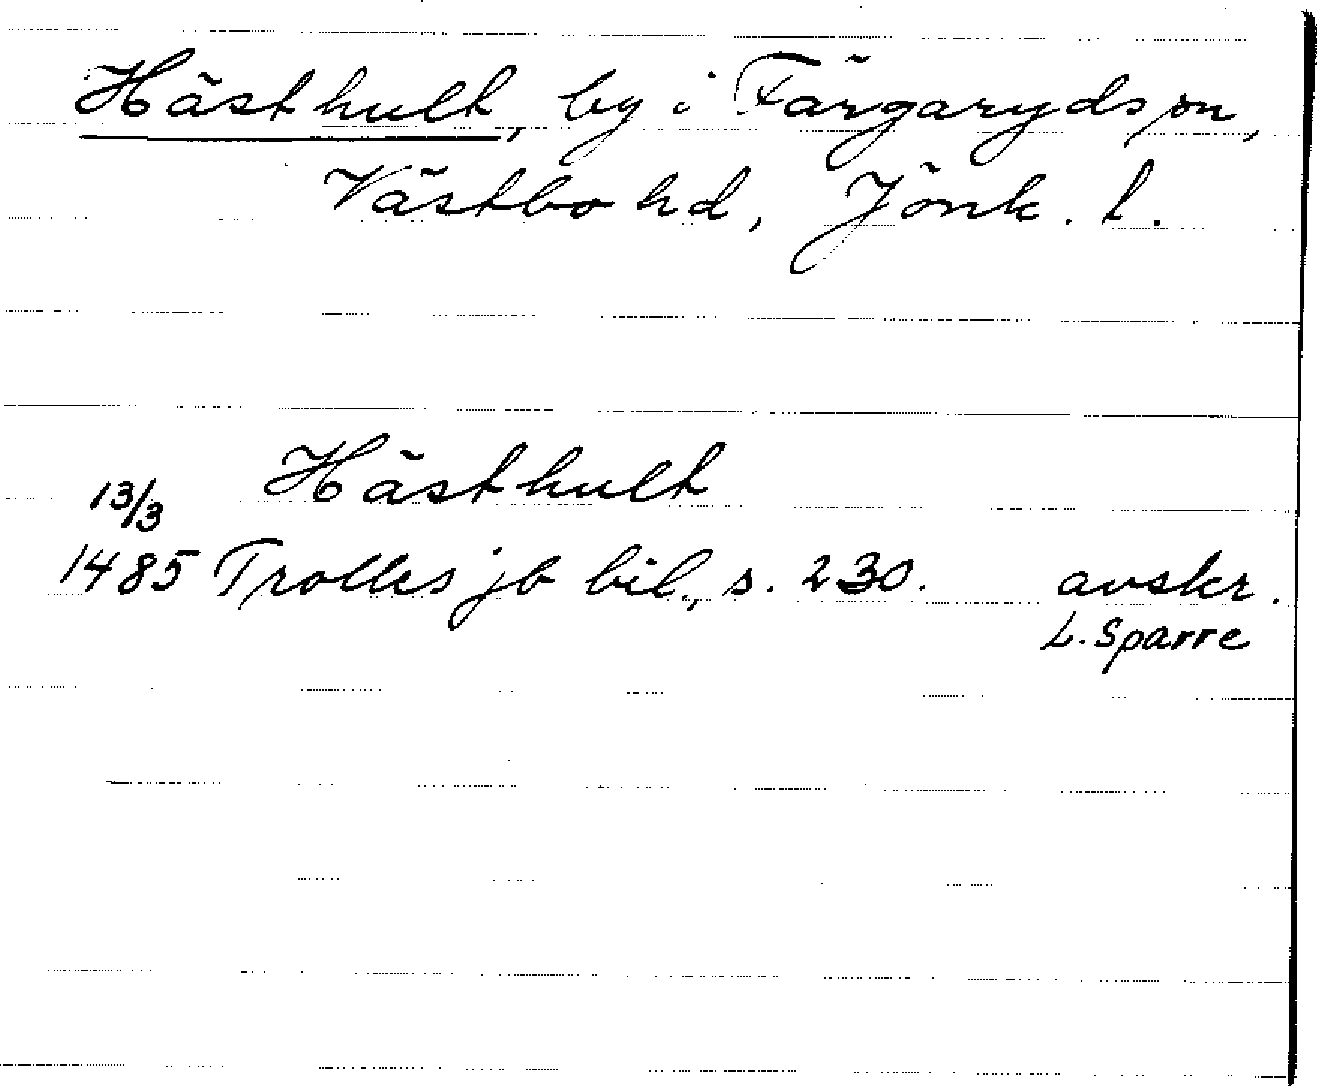 Hästhult, by i Färgaryds sn,
Västbo hd, Jönk. l.
Hästhult
13/3
1485 Trolles jb bil., s. 230. avskr.
L. Sparre